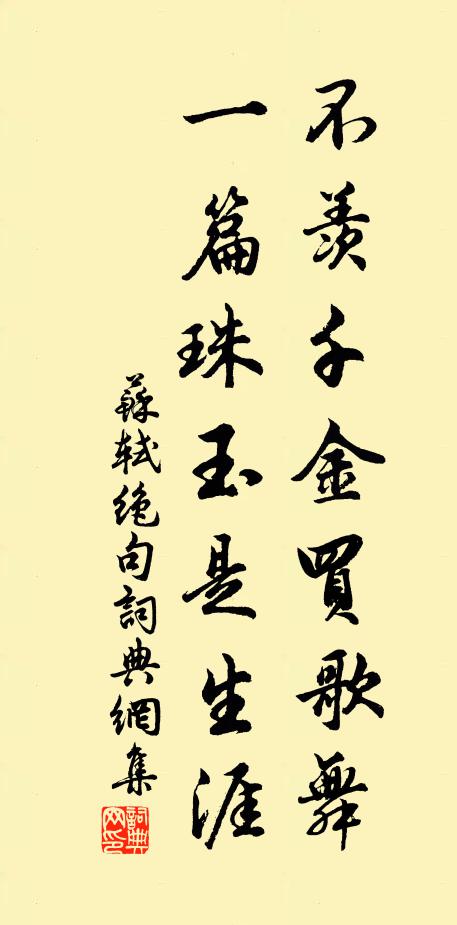 不羨千金買歌舞
一篇珠玉是生涯
蘇軾絶句詞典網集
詞典网印